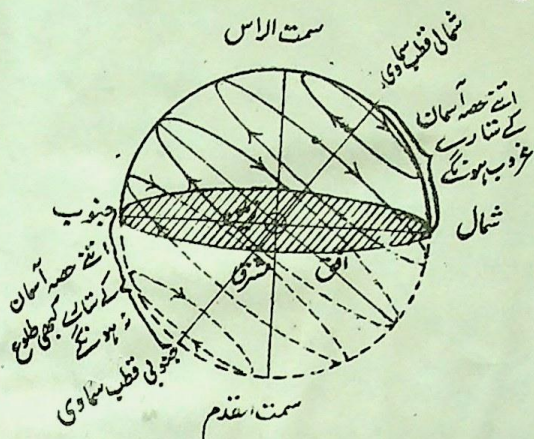 سمت الراس
شمالی قطب سماوی
اتنے حصہ آسمان
کے ستارے
غروب ہونگے
شمال
جنوب
زمین
مشرق
افق
اتنے حصہ آسمان
کے ستارے کبھی طلوع
نہ ہونگے
جنوبی قطب سماوی
سمت القدم